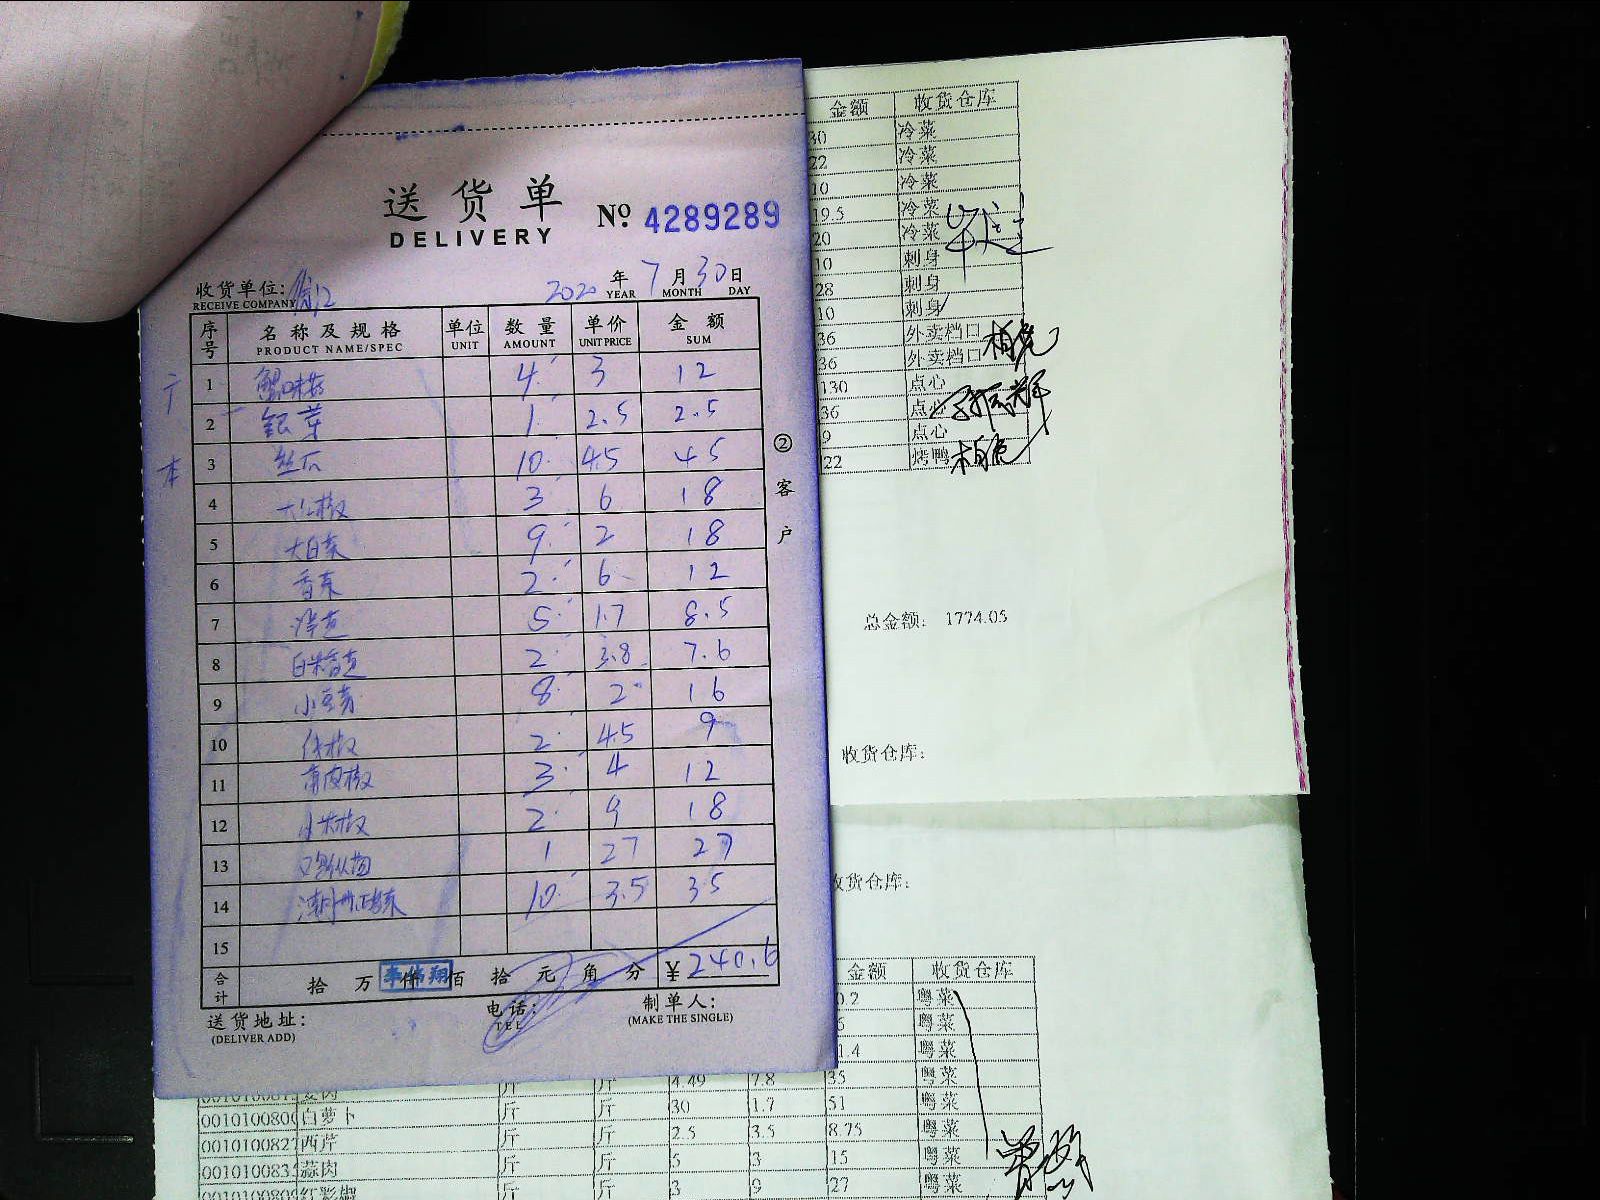 送货单
DELIVERY
№ 4289289
收货单位:
RECEIVE COMPANY
2020 年 7 月 30 日
YEAR MONTH DAY
序号 名称及规格 单位 数量 单价 金额
PRODUCT NAME/SPEC UNIT AMOUNT UNIT PRICE SUM
1 蟹味菇 4 3 12
2 银芽 1 2.5 2.5
3 丝瓜 10 4.5 45
4 大红椒 3 6 18
5 大白菜 9 2 18
6 香菜 2 6 12
7 洋芋 5 1.7 8.5
8 2 3.8 7.6
9 小豆芽 8 2 16
10 2 4.5 9
11 3 4 12
12 小米椒 2 9 18
13 1 27 27
14 10 3.5 35
15
合计 拾 万 佰 拾 元 角 分 ¥ 240.6
送货地址:
(DELIVER ADD)
电话:
TEL
制单人:
(MAKE THE SINGLE)
②客户
金额 收货仓库
30 冷菜
22 冷菜
10 冷菜
19.5 冷菜
20 冷菜
10 刺身
28 刺身
10 刺身
36 外卖档口
36 外卖档口
130 点心
36 点心
9 点心
22 烤鸭
总金额: 1774.05
收货仓库:
收货仓库:
金额 收货仓库
0.2 粤菜
6 粤菜
1.4 粤菜
斤 斤 4.49 7.8 35 粤菜
白萝卜 斤 斤 30 1.7 51 粤菜
西芹 斤 斤 2.5 3.5 8.75 粤菜
蒜肉 斤 斤 5 3 15 粤菜
红彩椒 斤 斤 3 9 27 粤菜